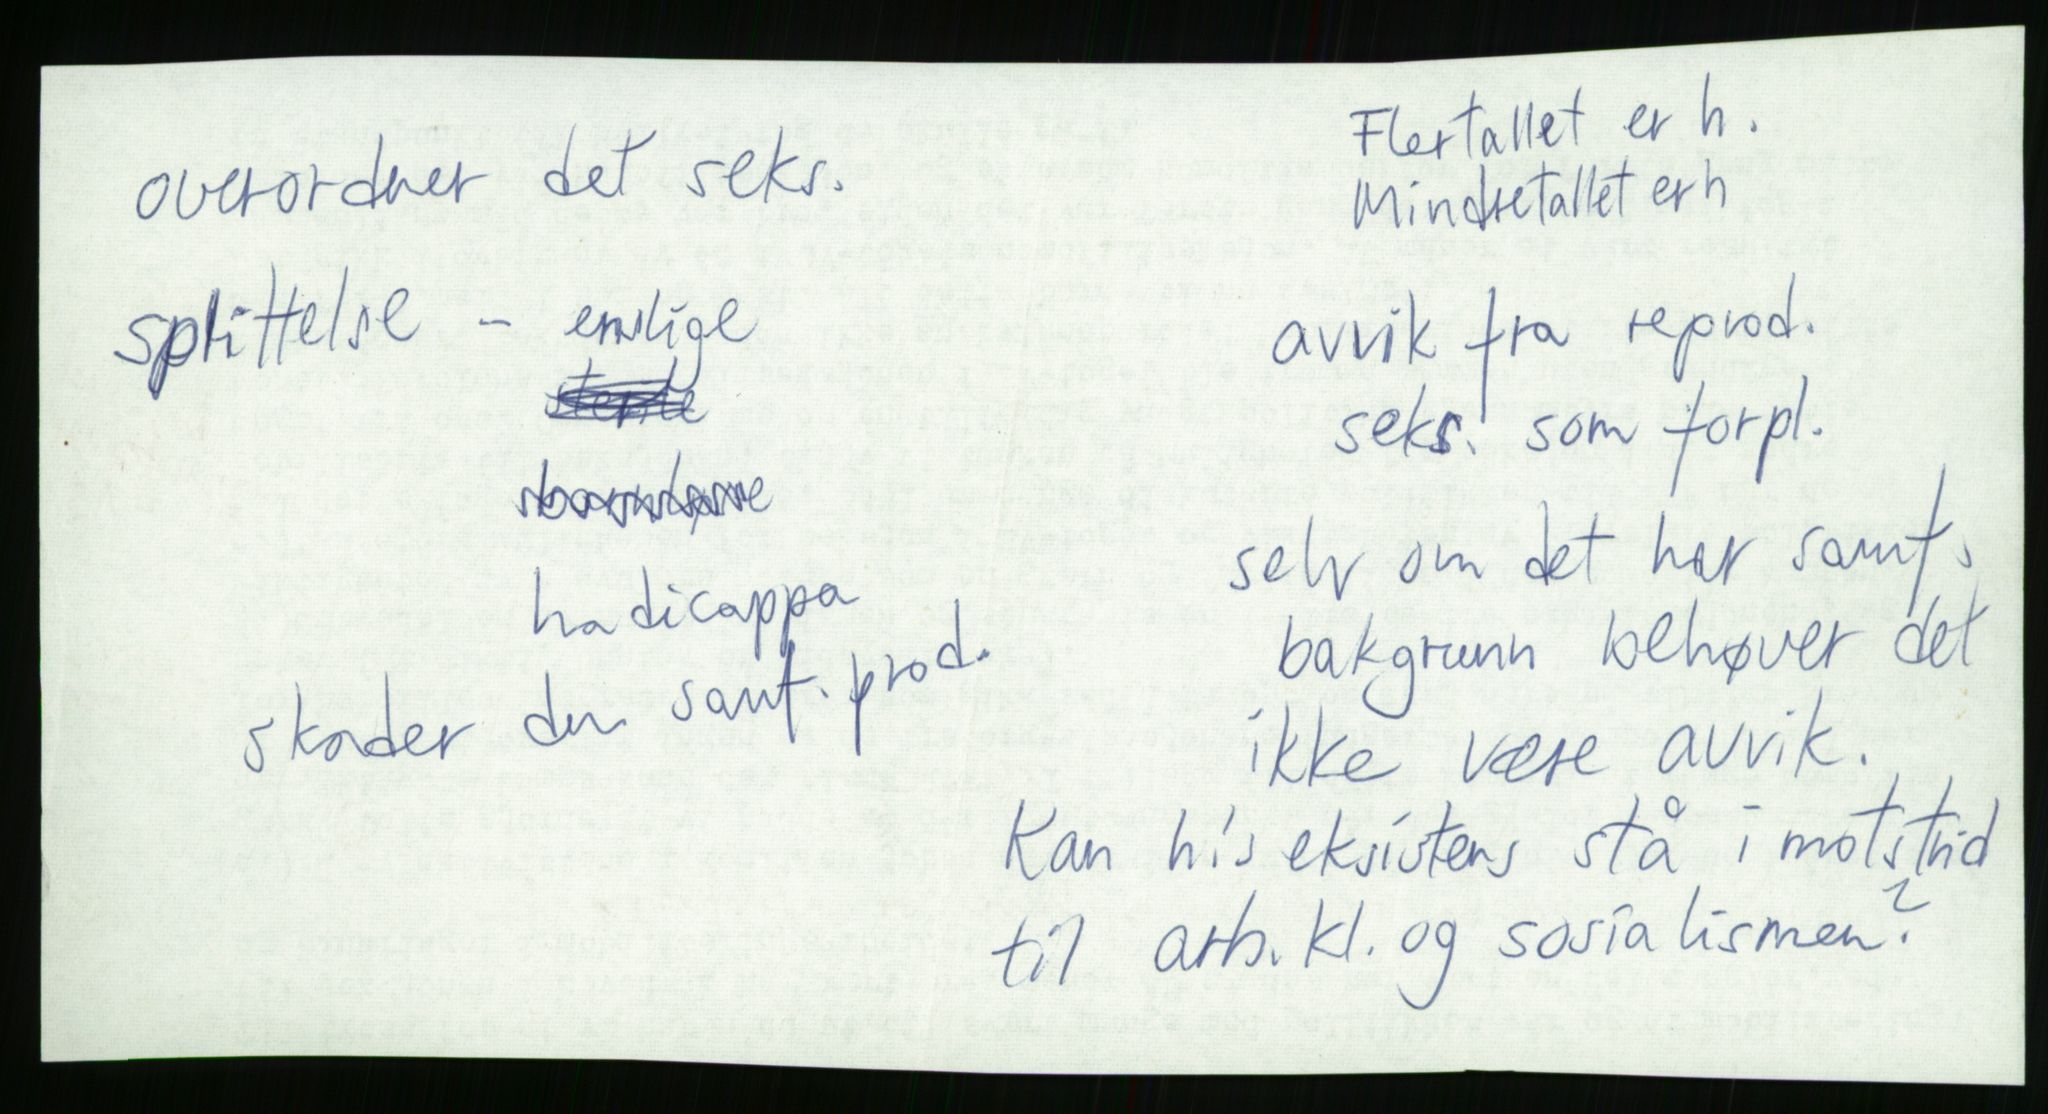 overordner det seks.
splittelse - enslige
sterile
barnløse
hadicappa
skader den samf. prod.
Flertallet er h.
Mindretallet er h
avvik fra reprod.
seks. som forpl.
selv om det har samf.
bakgrunn behøver det
ikke være avvik.
Kan h's eksistens stå i motstrid
til arb.kl. og sosialismen?